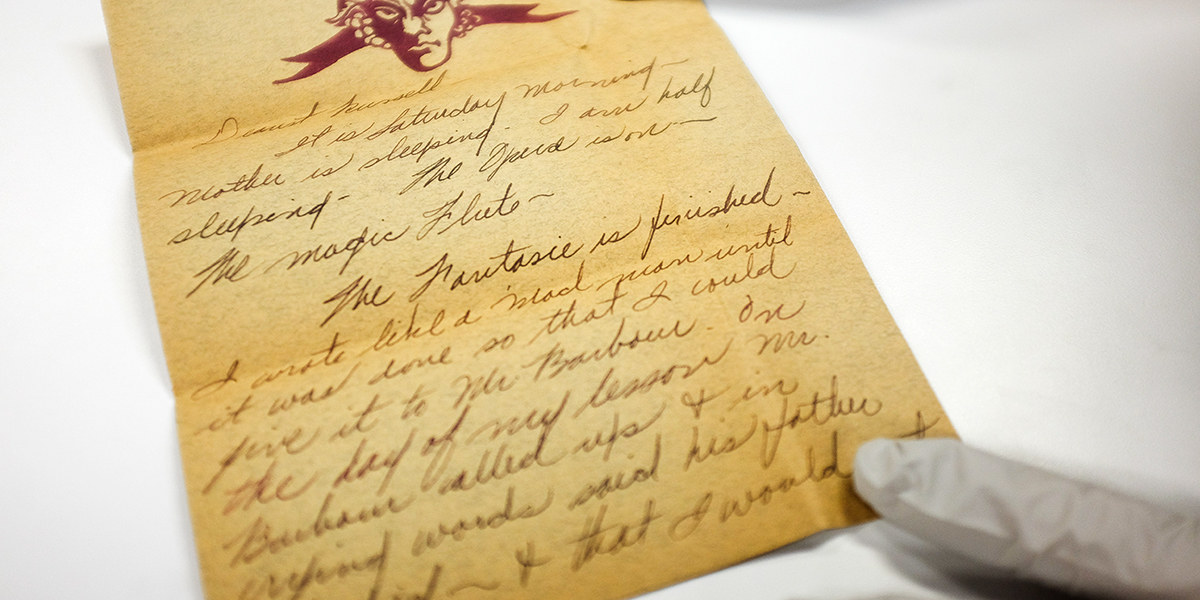 Dearest Russell
It is Saturday morning—
Mother is sleeping. I am half
sleeping— The Opera is on—
The Magic Flute—
The Fantasie is finished—
I wrote like a mad man until
it was done so that I could
give it to Mr. Barbour. On
the day of my lesson Mr.
Barbour called up & in
crying words said his father
& that I would